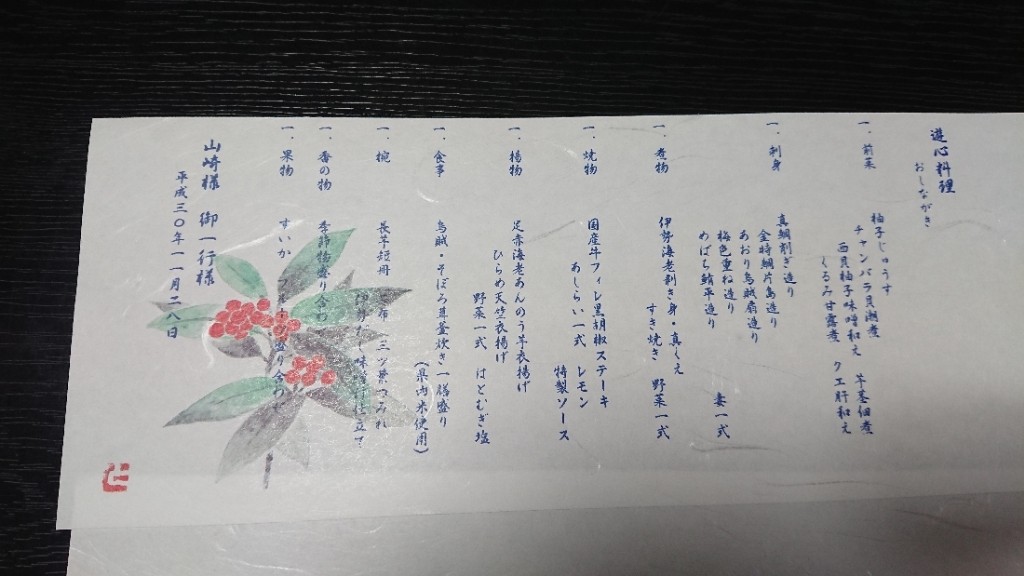 遊心料理
おしながき
一、前菜
柚子じゅうす
チャンバラ貝潮煮 芋茎佃煮
西貝柚子味噌和え クエ肝和え
くるみ甘露煮
一、刺身
真鯛削ぎ造り
金時鯛片島造り
あおり烏賊扇造り
梅色重ね造り
めばち鮪平造り 妻一式
一、煮物
伊勢海老剥き身・真くえ
すき焼き 野菜一式
一、焼物
国産牛フィレ黒胡椒ステーキ
あしらい一式 レモン
特製ソース
一、揚物
足赤海老あんのう芋衣揚げ
ひらめ天竺衣揚げ
野菜一式 はとむぎ塩
一、食事
烏賊・そぼろ茸釜炊き一膳盛り
(県内米使用)
一、椀
長芋短冊 三ツ葉つみれ
味噌仕立て
一、香の物
季節物盛り合わせ
一、果物
すいか フルーツ盛り合わせ
山崎様 御一行様
平成三〇年一一月二八日